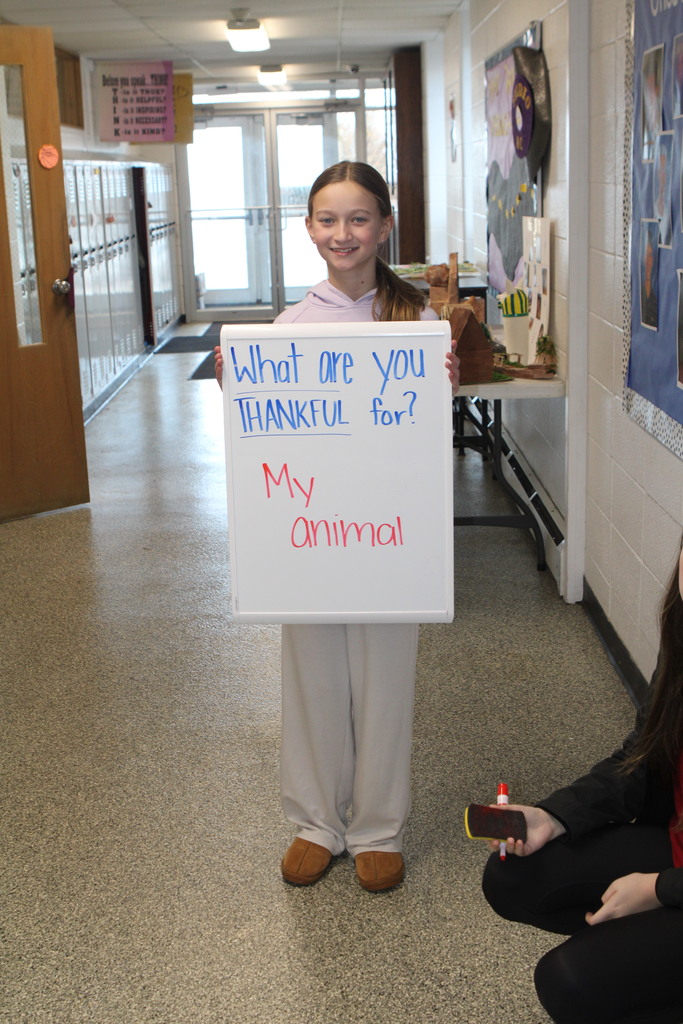 Before you speak... THINK
T -is it TRUE?
H -is it HELPFUL?
I -is it INSPIRING?
N -is it NECESSARY?
K -is it KIND?
What are you
THANKFUL for?
My
animal